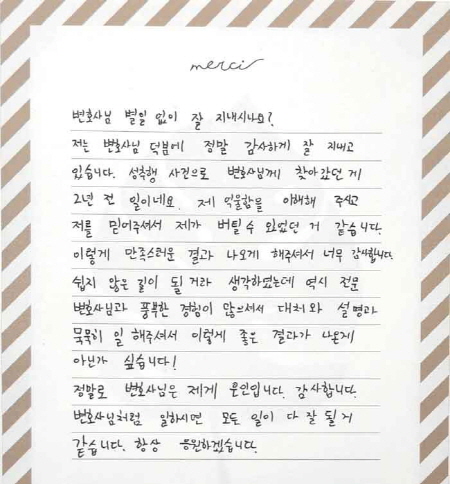 merci
변호사님 별일 없이 잘 지내시나요?
저는 변호사님 덕분에 정말 감사하게 잘 지내고
있습니다. 성추행 사건으로 변호사님께 찾아갔던 게
2년 전 일이네요. 제 억울함을 이해해 주시고
저를 믿어주셔서 제가 버틸 수 있었던 거 같습니다.
이렇게 만족스러운 결과 나오게 해주셔서 너무 감사합니다.
쉽지 않은 길이 될 거라 생각하였는데 역시 전문
변호사님과 풍부한 경험이 많으셔서 대처와 설명과
묵묵히 일 해주셔서 이렇게 좋은 결과가 나온게
아닌가 싶습니다!
정말로 변호사님은 제게 은인입니다. 감사합니다.
변호사님처럼 일하시면 모든 일이 다 잘 될 거
같습니다. 항상 응원하겠습니다.